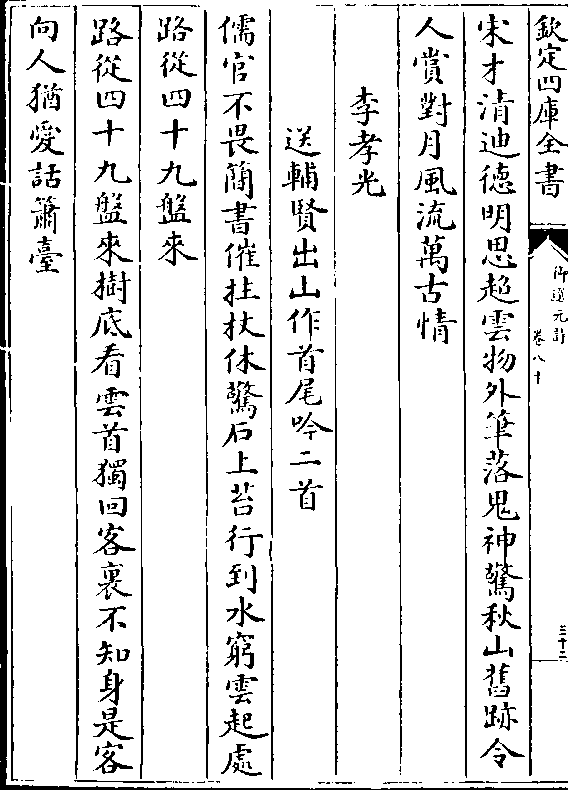 欽定四庫全書
御選元詩
卷八十
三十二
宋才清迪德明思超雲物外筆落鬼神驚秋山舊跡令
人賞對月風流萬古情
李孝光
送輔賢出山作首尾吟二首
儒官不畏蘭書催拄杖休驚石上苔行到水窮雲起處
路從四十九盤來
路從四十九盤來樹底看雲首獨回客裏不知身是客
向人猶愛話簫臺